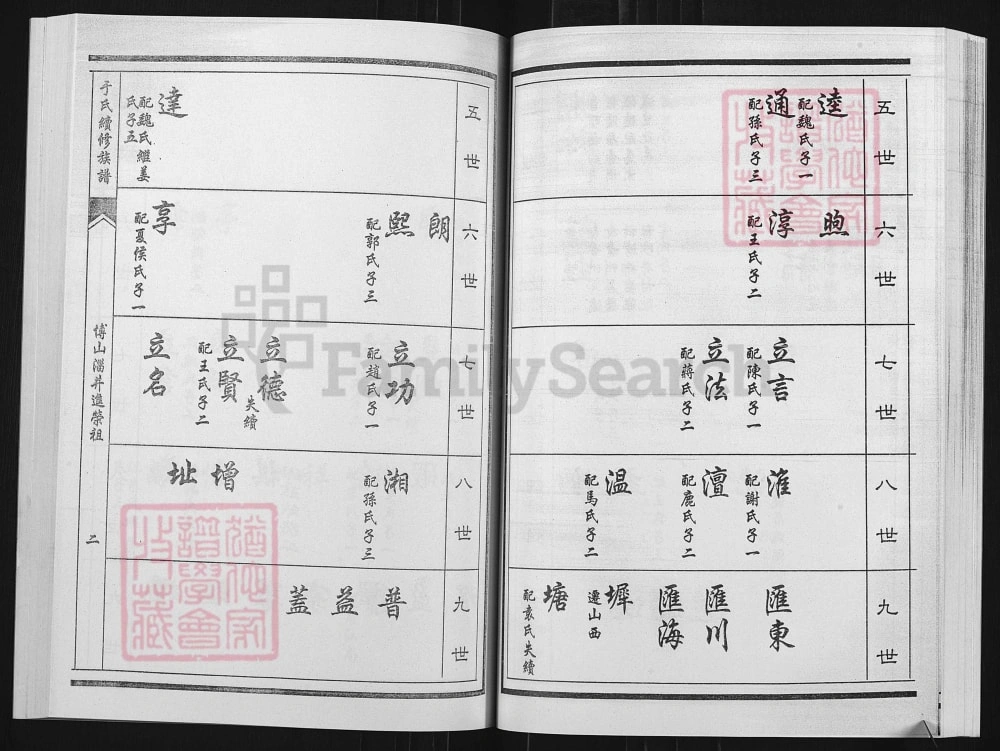 五世
逵
配魏氏子一
通
配孫氏子三
六世
煦
淳
配王氏子二
七世
立言
配陳氏子一
立法
配蔣氏子二
八世
淮
配謝氏子一
澶
配鹿氏子二
温
配馬氏子二
九世
匯東
匯川
匯海
墀
遷山西
塘
配袁氏失續
五世
達
配魏氏繼姜
氏子五
六世
朗
熙
配郭氏子三
享
配夏侯氏子一
七世
立功
配趙氏子一
立德
失續
立賢
配王氏子二
立名
八世
湘
配孫氏子三
增
址
九世
普
益
蓋
于氏續修族譜
博山淄井進榮祖
二
FamilySearch